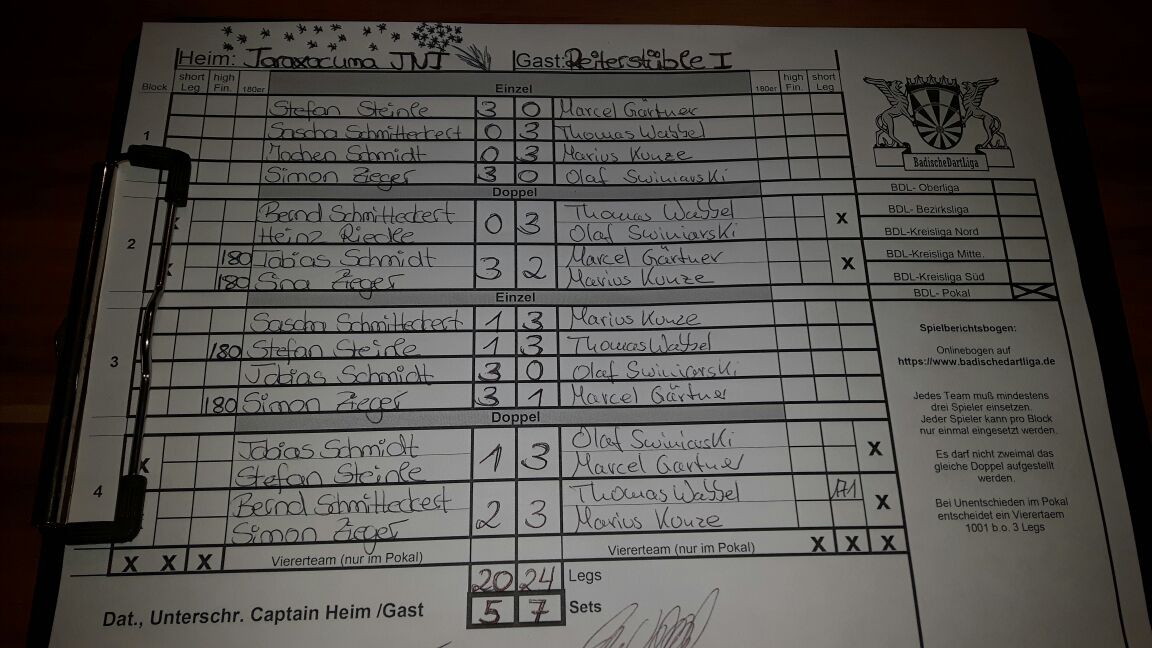 Heim: Taraxacuma JNI Gast: Reiterstüble I
Block short Leg high Fin. 180er Einzel 180er high Fin. short Leg
1
Stefan Steinle 3 0 Marcel Gärtner
Sascha Schmitteckert 0 3 Thomas Wabbel
Jochen Schmidt 0 3 Marius Kunze
Simon Zieger 3 0 Olaf Swiniarski
Doppel
2
Bernd Schmitteckert 0 3 Thomas Wabbel X
Heinz Riedle Olaf Swiniarski
180 Tobias Schmidt 3 2 Marcel Gärtner X
180 Sina Zieger Marius Kunze
Einzel
3
Sascha Schmitteckert 1 3 Marius Kunze
180 Stefan Steinle 1 3 Thomas Wabbel
Tobias Schmidt 3 0 Olaf Swiniarski
180 Simon Zieger 3 1 Marcel Gärtner
Doppel
4
X Tobias Schmidt 1 3 Olaf Swiniarski X
Stefan Steinle Marcel Gärtner
Bernd Schmitteckert 2 3 Thomas Wabbel X
Simon Zieger Marius Kunze
X X X Viererteam (nur im Pokal) Viererteam (nur im Pokal) X X X
20 24 Legs
Dat., Unterschr. Captain Heim /Gast 5 7 Sets
BadischeDartLiga
BDL- Oberliga
BDL- Bezirksliga
BDL-Kreisliga Nord
BDL-Kreisliga Mitte.
BDL-Kreisliga Süd
BDL- Pokal X
Spielberichtsbogen:
Onlinebogen auf
https://www.badischedartliga.de
Jedes Team muß mindestens
drei Spieler einsetzen.
Jeder Spieler kann pro Block
nur einmal eingesetzt werden.
Es darf nicht zweimal das
gleiche Doppel aufgestellt
werden.
Bei Unentschieden im Pokal
entscheidet ein Vierertaem
1001 b.o. 3 Legs